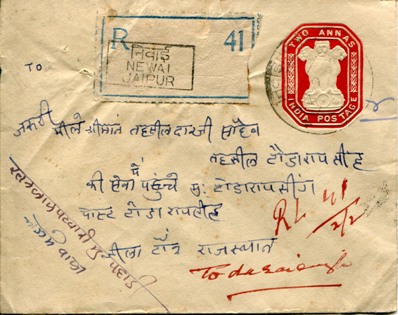 R 41
निवाई
NEWAI
JAIPUR
TWO ANNAS
INDIA POSTAGE
TO
जरूरी
श्रीमान तहसीलदारजी साहेब
तहसील टोडारायसींह
की सेवा में पहुंचे मु. टोडारायसींग
पोस्ट टोडारायसींह
जीला टोंक राजस्थान
RL 41
Todaraisingh